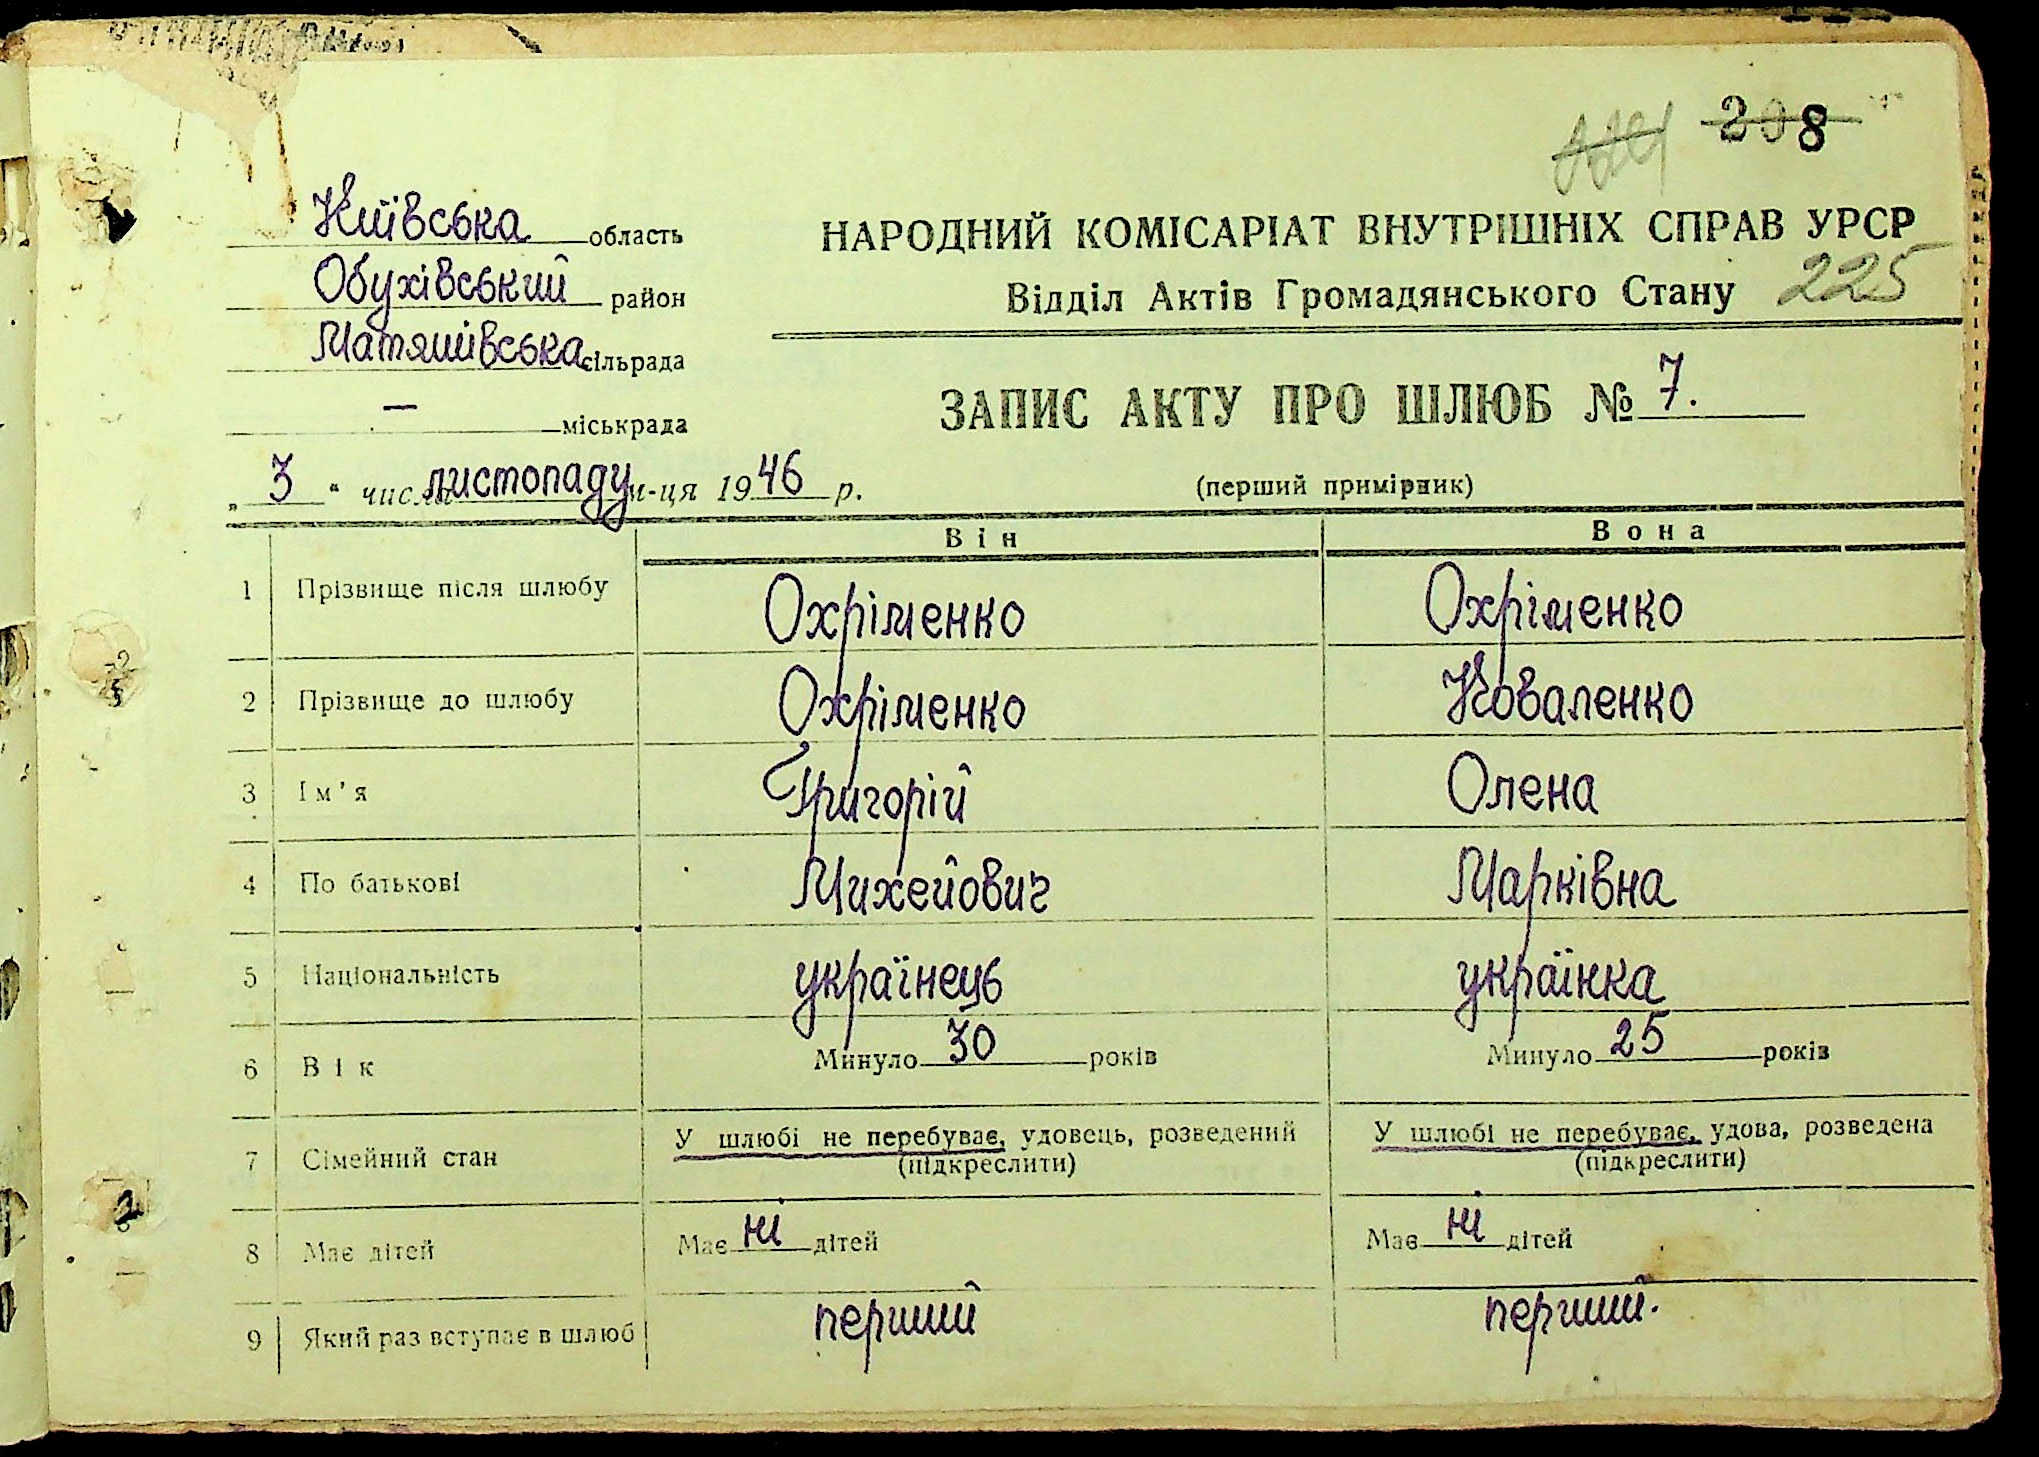 208
Київська область
НАРОДНИЙ КОМІСАРІАТ ВНУТРІШНІХ СПРАВ УРСР
Обухівський район
Відділ Актів Громадянського Стану 225
Матяшівська сільрада
ЗАПИС АКТУ ПРО ШЛЮБ № 7.
— міськрада
„ 3 “ числа листопаду м-ця 1946 р.
(перший примірник)
Він Вона
1 Прізвище після шлюбу Охріменко Охріменко
2 Прізвище до шлюбу Охріменко Коваленко
3 Ім'я Григорій Олена
4 По батькові Михейович Марківна
5 Національність українець українка
6 Вік Минуло 30 років Минуло 25 років
7 Сімейний стан У шлюбі не перебуває, удовець, розведений У шлюбі не перебуває, удова, розведена
(підкреслити) (підкреслити)
8 Має дітей Має ні дітей Має ні дітей
9 Який раз вступає в шлюб перший перший.